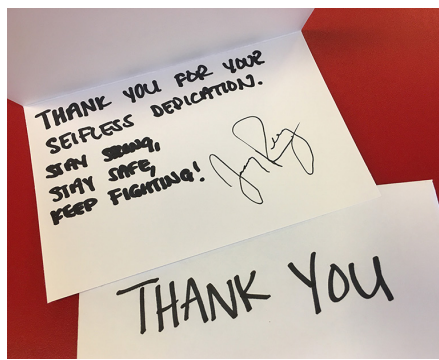 THANK YOU FOR YOUR
SELFLESS DEDICATION.
STAY STRONG,
STAY SAFE,
KEEP FIGHTING!
THANK YOU